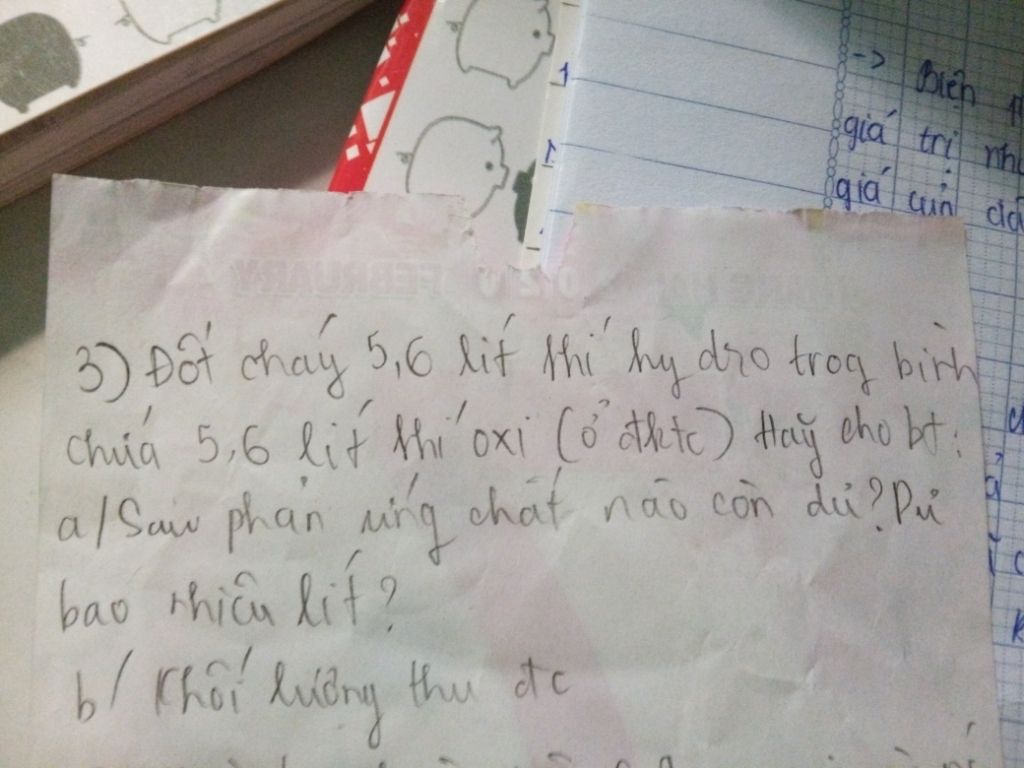 -> Biến
giá trị
giá
3) Đốt cháy 5,6 lít khí hydro trog bình
chứa 5,6 lít khí oxi (ở đktc) Hãy cho bt:
a/ Sau phản ứng chất nào còn dư? Dư
bao nhiêu lít?
b/ Khối lượng thu đc